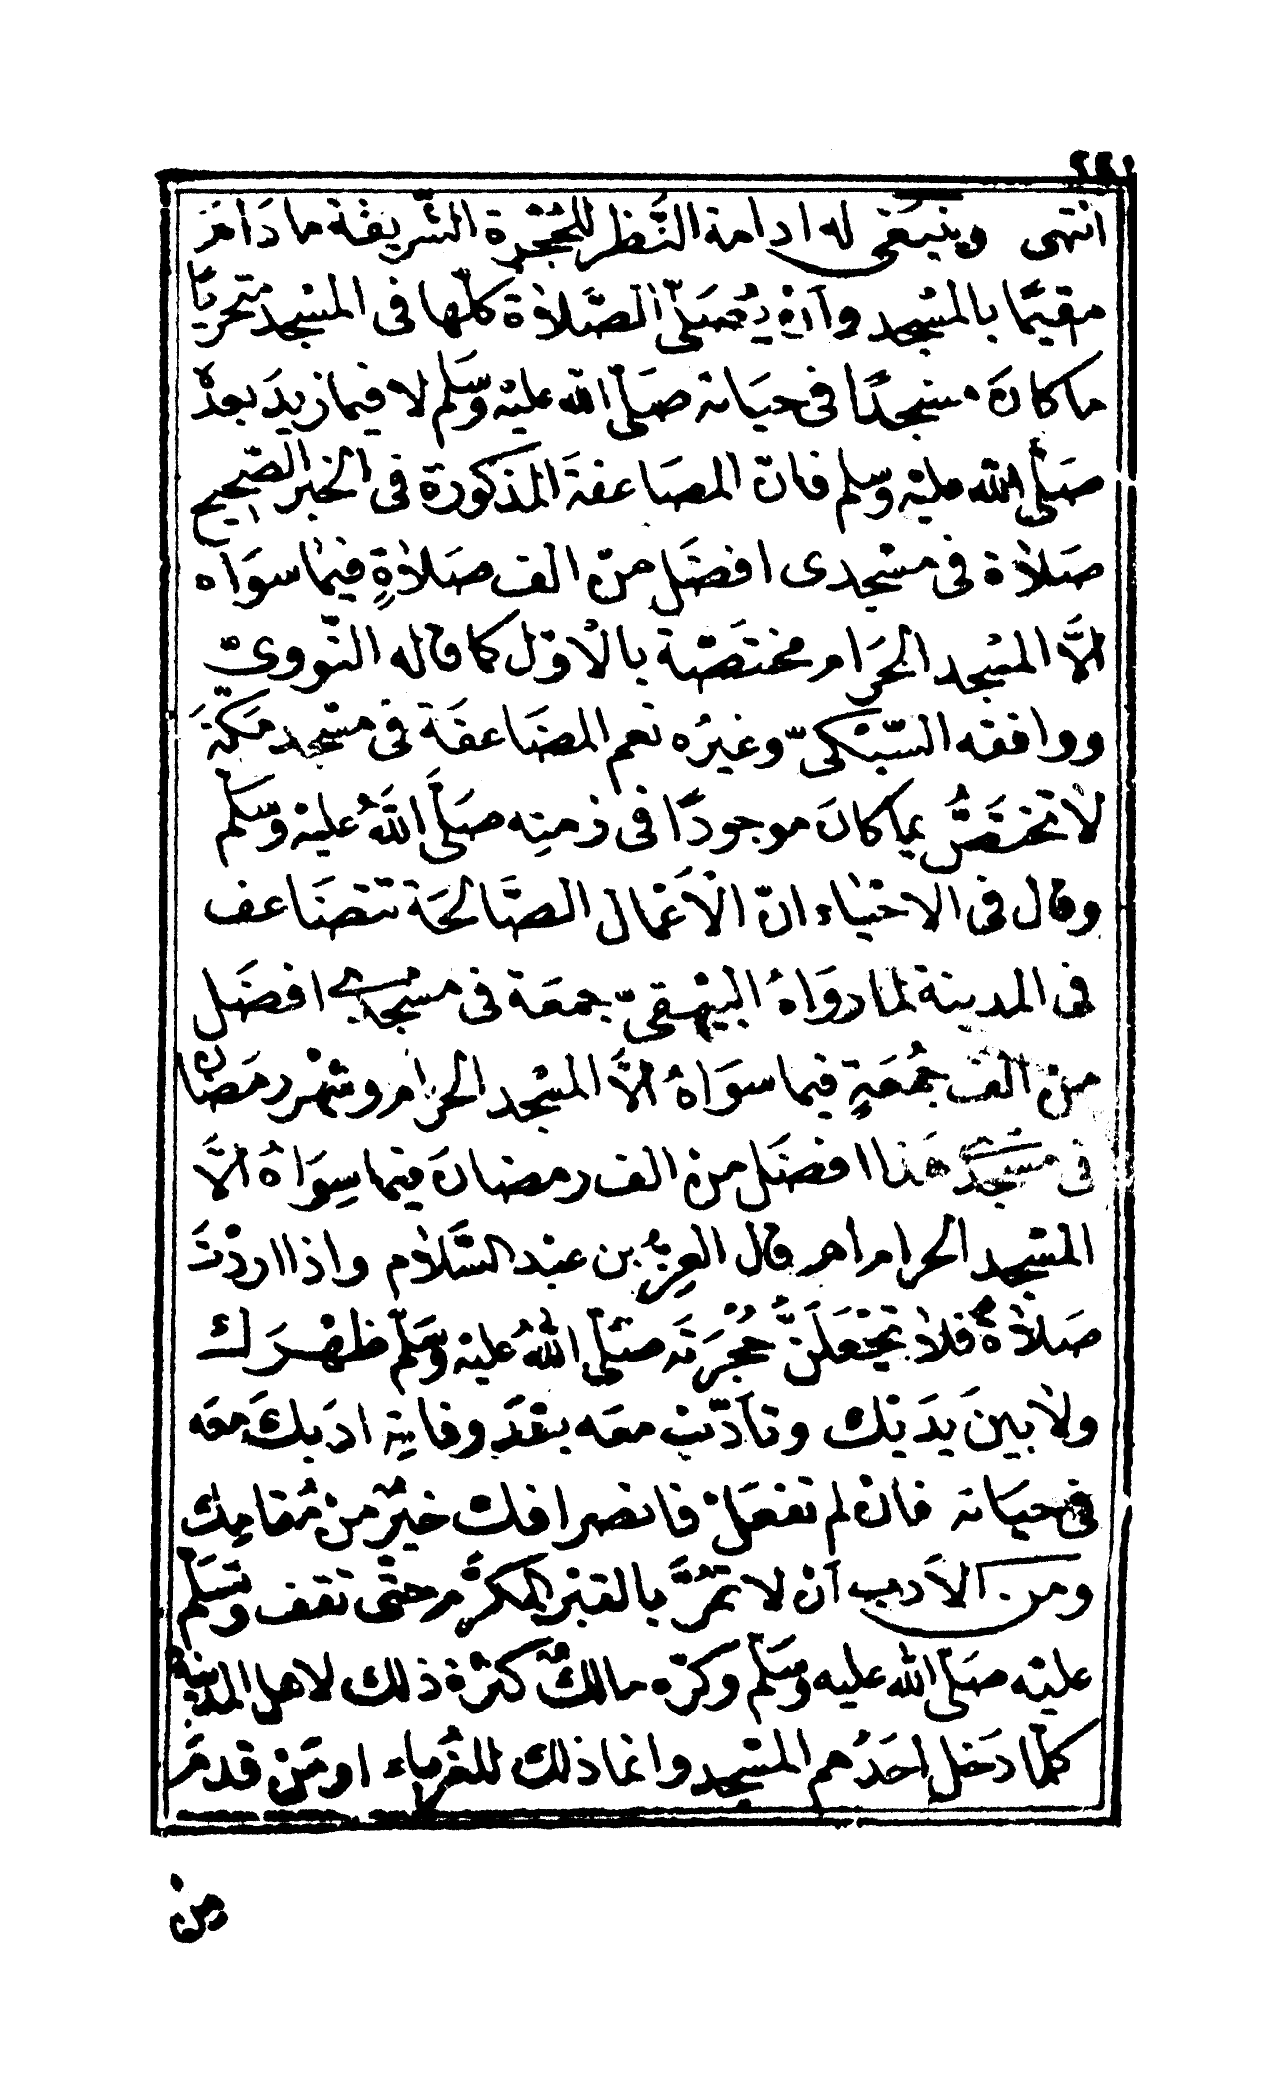 انتهى وينبغى له ادامة النَّظر للحُجْرة الشّريفة ما دَامَ
مقيمًا بالمسْجد وآنْ يُصَلّى الصَّلاة كلّها فى المسْجد متحريًا
ما كانَ مسْجدًا فى حيَاته صَلّى الله عليْه وَسَلم لا فيما زيدَ بعدَهُ
صَلّى الله عليْه وسلم فانّ المصَاعفةَ المذكورة فى الخبر الصّحيح
صَلاة فى مسْجدى افضَل منْ الف صَلاةٍ فيمَا سوَاه
الَّا المسْجد الحرَام مختَصّة بالْاوّل كما قاله النّووىّ
ووافقه السّبْكىّ وغيرُه نعم المضَاعفَة فى مسْجد مَكّةَ
لَا تختَصُّ بما كانَ موجودًا فى زمنِه صَلَّى اللهَُ عليْه وسَلَّم
وقال فى الاحْيَاء انّ الْاَعْمال الصَّالحَة تتضَاعف
فى المدينة لما روَاهُ البيْهقىّ جمعَة فى مسْجدى افضَل
منْ الف جُمُعَةٍ فيما سوَاهُ الَّا المسْجد الحرَام وشهْر رمَضَان
فى مسْجدى هَذا افضَل منْ الف رمضانَ فيما سِوَاهُ الَّا
المسْجد الحرَام اهر قال العِزُّ بن عبْد السَّلَام واذا اردْتَ
صَلَاةً فلَا تجْعَلَنَّ حُجْرَتَه صَلّى اللهُ عليْه وَسَلّم ظهْرَك
ولَا بينَ يدَيْك وتَادّبْ معَه بعْدَ وفاتِه ادَبكَ معَه
فى حيَاته فانْ لم تفعَلْ فانصرافك خيْرٌ منْ مُقامِك
ومن الاَدب آنْ لَا تمُرَّ بالقبْر المكرَّم حتّى تقف وتسَلّم
عليْه صَلّى الله عليه وسَلّم وكرّه مالكٌ كثرْة ذلك لاهل المدينة
كلّما دَخل احَدُهم المسْجد وانما ذلك للغُرباء او مَنْ قدمَ
منْ